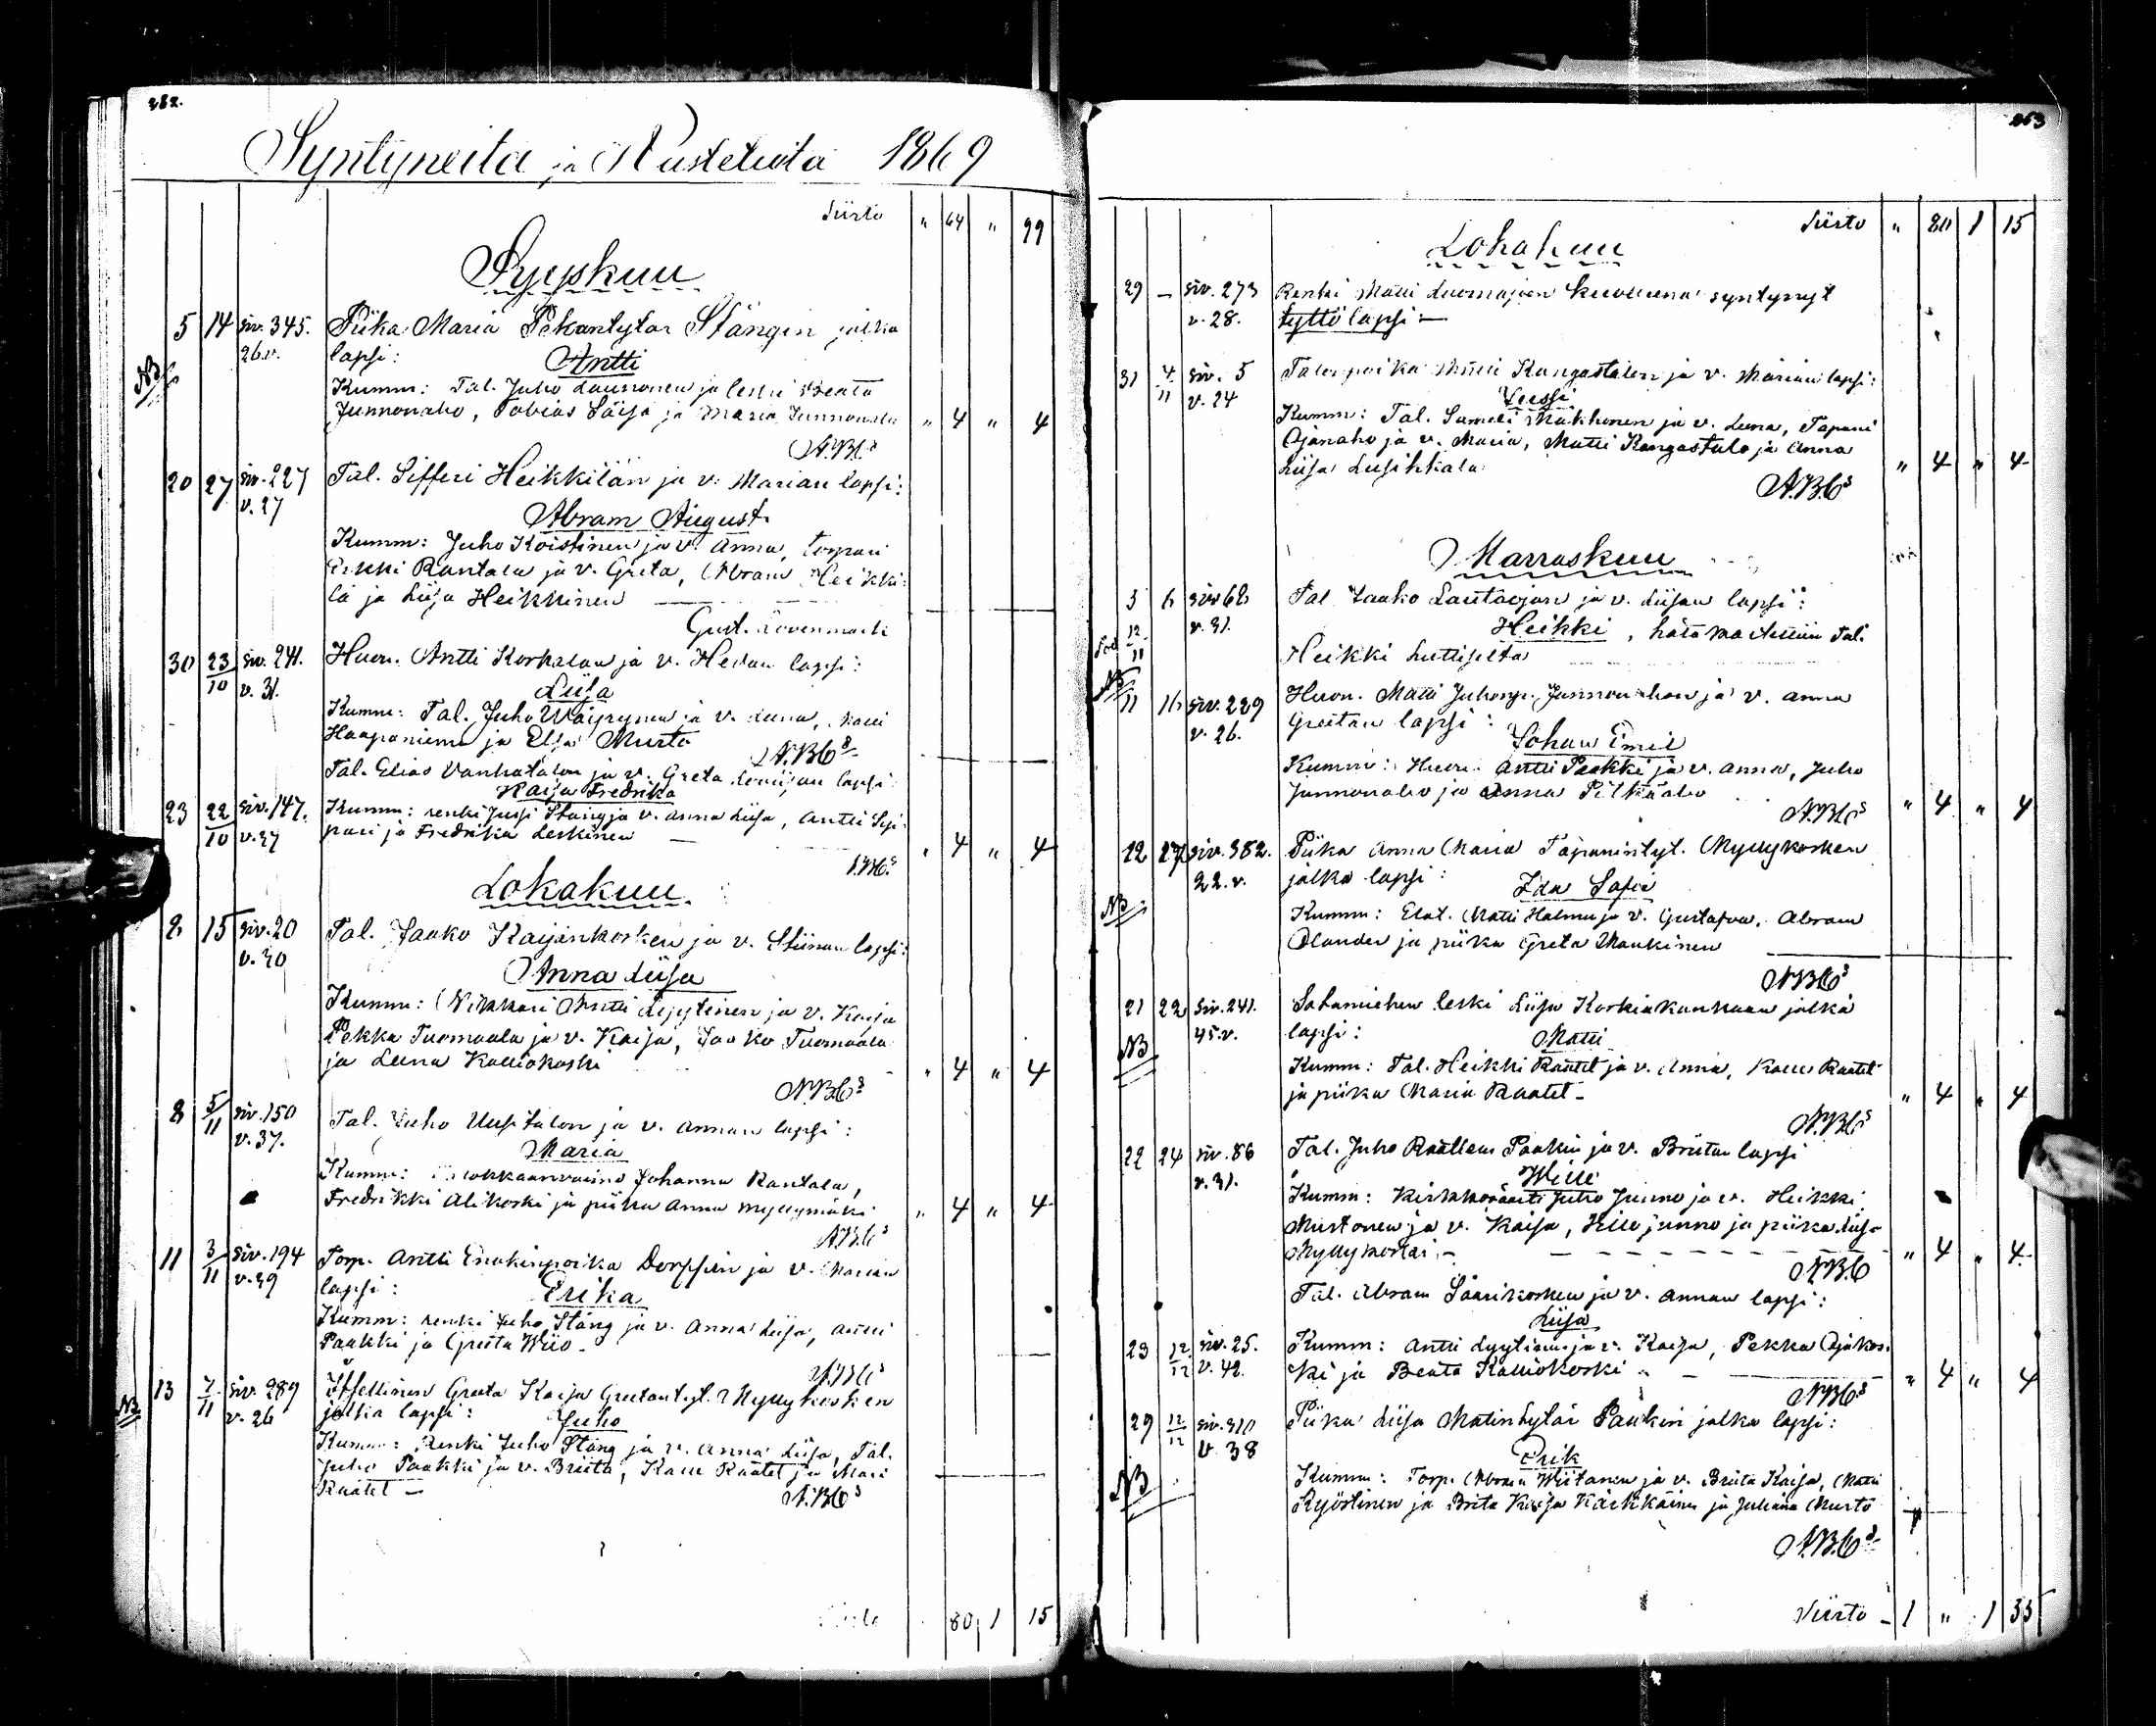 262.
Syntyneitä ja Kastetuita 1869
Siirto " 64 " 99
Syyskuu
5 14 siv. 345. Piika Maria Pekantytär Stångin jalka
26.v. lapsi: Antti
NB Kumm: Tal. Juho Launonen ja leski Beata
Junnonaho, Tobias Säisä ja Maria Junnonaho " 4 " 4
N.B.C:s
20 27 siv. 227 Tal. Sifferi Heikkilän ja v. Marian lapsi:
v. 27
Abram August
Kumm: Juho Koistinen ja v. Anna, torpari
Erkki Rantala ja v. Greta, Abram Heikki-
lä ja Liisa Heikkinen —
Gust. Lovenmark
30 23/10 siv. 241. Huon. Antti Korkalan ja v. Hedan lapsi:
v. 31. Liisa
Kumm: Tal. Juho Wäyrynen ja v. Leena, Kalli
Haapaniemi ja Elsa Murto
N.B.C:s
Tal. Elias Vanhatalon ja v. Greta Lovisan lapsi
Kaisa Fredrika
23 22/10 siv. 147. Kumm: renki Jussi Stång ja v. Anna Liisa, Antti
v. 27 ja Fredrika Leskinen — " 4 " 4
Lokakuu
2 15 siv. 20 Tal. Jaako Kaijankosken ja v. Stiinan lapsi:
v. 30
Anna Liisa
Kumm: Nikkari Antti Lyytinen ja v. Kaisa
Pekka Tuomaala ja v. Kaisa, Jaako Tuomaala
ja Leena Kalliokoski " 4 " 4
N.B.C:s
8 5/11 siv. 150 Tal. Juho Uusitalon ja v. Annan lapsi:
v. 37. Maria
Kumm: Johanna Rantala,
Fredrikki Alikoski ja piika Anna Myllymäki " 4 " 4
N.B.C:s
11 3/11 siv. 194 Torp. Antti Enokinpoika Dorffin ja v. Marian
v. 29 lapsi: Erika
Kumm: renki Juho Stång ja v. Anna Liisa, Antti
Paakki ja Greeta Wiio —
N.B.C:s
13 7/11 siv. 289 Itsellinen Greeta Kaisa Greetantyt. Myllykosken
NB v. 26 jalka lapsi: Juho
Kumm: Renki Juho Stång ja v. Anna Liisa, Tal.
Juho Paakki ja v. Briita, Kalle Raatet ja Mari
Raatet —
N.B.C:s
80 1 15
263
Siirto " 80 1 15
Lokakuu
29 — siv. 273 Renki Matti Luomajoen kuolleena syntynyt
v. 28. tyttö lapsi —
31 4/11 siv. 5 Talonpoika Matti Kangastalon ja v. Marian lapsi:
v. 24 Jussi
Kumm: Tal. Sameli Makkonen ja v. Leena, Tapani
Ojanaho ja v. Maria, Matti Kangastalo ja Anna
Liisa Lusikkala " 4 " 4
N.B.C:s
Marraskuu
5 6 siv 62 Tal. Jaako Lautaojan ja v. Liisan lapsi:
12/11 v. 31. Heikki, hätä kastettiin Tal.
Heikki Luttiselta
NB
11 16 siv. 229 Huon. Matti Juhonp. Junnonahon ja v. Anna
v. 26. Greetan lapsi:
Johan Emil
Kumm: Huon. Antti Paakki ja v. Anna, Juho
Junnonaho ja Anna Pitkäaho " 4 " 4
N.B.C:s
12 17 siv. 382. Piika Anna Maria Tapanintyt. Myllykosken
22.v. jalka lapsi: Ida Sofia
NB Kumm: Elat. Matti Halmu ja v. Gustafva, Abram
Olander ja piika Greta Maukinen —
N.B.C:s
21 22 siv. 241. Sahamiehen leski Liisa Korkiakankaan jalka
45.v. lapsi: Matti
NB Kumm: Tal. Heikki Raatet ja v. Anna, Kalle Raatet
ja piika Maria Raatet — " 4 " 4
N.B.C:s
22 24 siv. 86 Tal. Juho Paakin ja v. Briitan lapsi
v. 31. Wille
Kumm: Kirkkoväärti Juho Junno ja v. Heikki
Mustonen ja v. Kaisa, Kalle Junno ja piika Liisa
Myllykoski — " 4 " 4
N.B.C
Tal. Abram Saarikosken ja v. Annan lapsi:
Liisa
23 12/12 siv. 25. Kumm: Antti Lyytinen ja v. Kaisa, Pekka Ojakos-
v. 42. ki ja Beata Kalliokoski — " 4 " 4
N.B.C:s
29 12/12 siv. 310 Piika Liisa Matintytär Paakin jalka lapsi:
v. 38 Erik
NB Kumm: Torp. Abram Wiitanen ja v. Briita Kaisa, Matti
Ryöstinen ja Brita Kaisa Kärkkäinen ja Juliana Murto
N.B.C:s
Siirto — 1 " 1 35